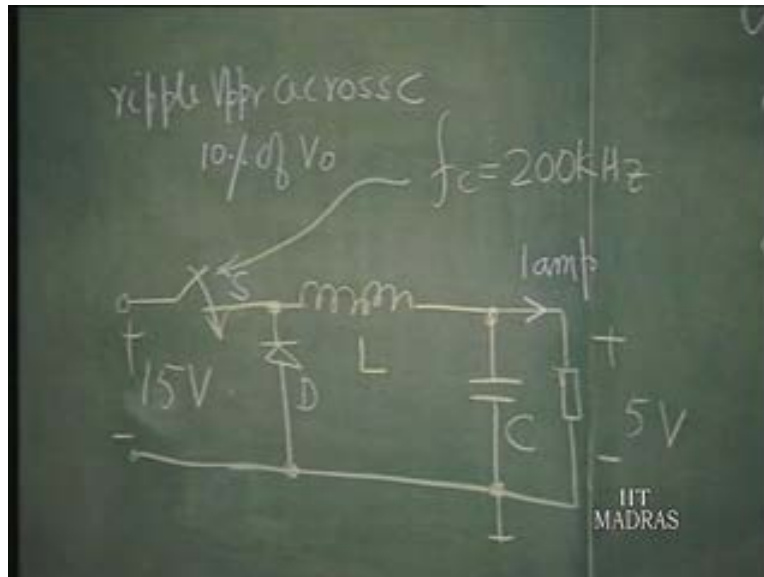 ripple Vppr across C
10% of Vo
fc = 200kHz
1amp
S
+
+
15V
D
L
C
5V
-
-
IIT
MADRAS